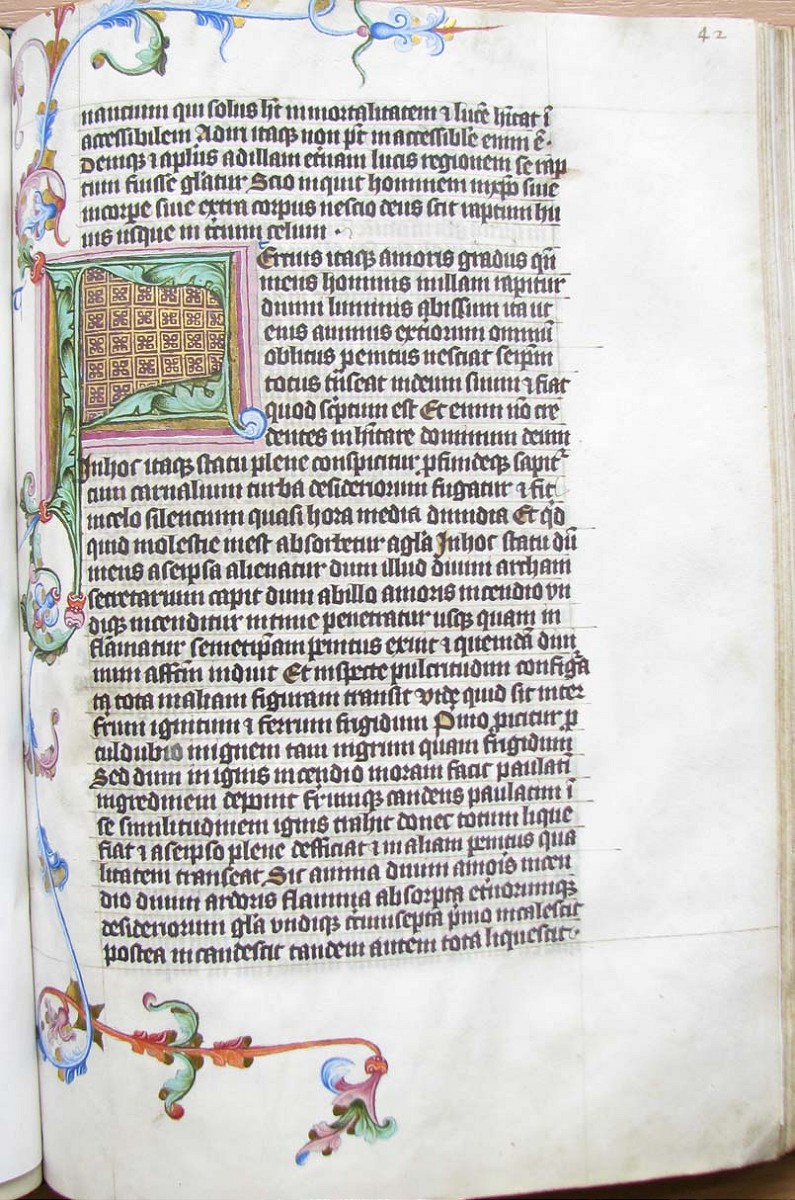 42
nantium qui solus ht inmortalitatem ⁊ lucē hītat ī
accessibilem Adiri itaqꝫ non pt inaccessible enim ē·
Deniqꝫ ⁊ aplus ad illam etnam lucis regionem se rap
tum fuisse glatur Scio inquit hominem in xpo siue
in corpe siue extra corpus nescio deus scit raptum hu
ius usque in tcium celum ·
Ercius itaqꝫ amoris gradus qn
mens hominis in illam rapitur
diuini luminis abissum ita ut
eius animus extiorum omniū
oblitus penitus nesciat seipm
totus tnseat in deum suum ⁊ fiat
quod scptum est Et enim nō cre
dentes inhītare dominum deum
In hoc itaqꝫ statu plene conspicitur
cum carnalium turba desideriorum fugatur ⁊ fit
in celo silencium quasi hora media dimidia Et qd
quid molestie inest absorbetur a glā In hoc statu dū
mens a seipsa alienatur dum illud diuini archam
secretarium capit dum ab illo amoris incendio vn
diqꝫ incenditur intime penetratur usqꝫ quam in
flāmatur semetipsam penitus exuit ⁊ quemdā diui
num affctm induit Et inspecte pulcritudini configᵃta
tota in aliam figuram transit vide quid sit inter
frrum ignitum ⁊ ferrum frigidum Pimo picitur p
cul dubio in ignem tam nigrum quam frigidum
Sed dum in ignis incendio moram facit paulatī
ingrediem deponit frrumqꝫ candens paulatim ī
se similitudinem ignis trahit donec totum lique
fiat ⁊ a seipso plene defficiat ⁊ in aliam penitus qua
litatem transeat Sic anima diuini amoris incen
dio diuini ardoris flamma absorpta etnorumqꝫ
desideriorum glā vndiqꝫ ccumsepta pmo incalescit
postea incandescit tandem autem tota liquescit·